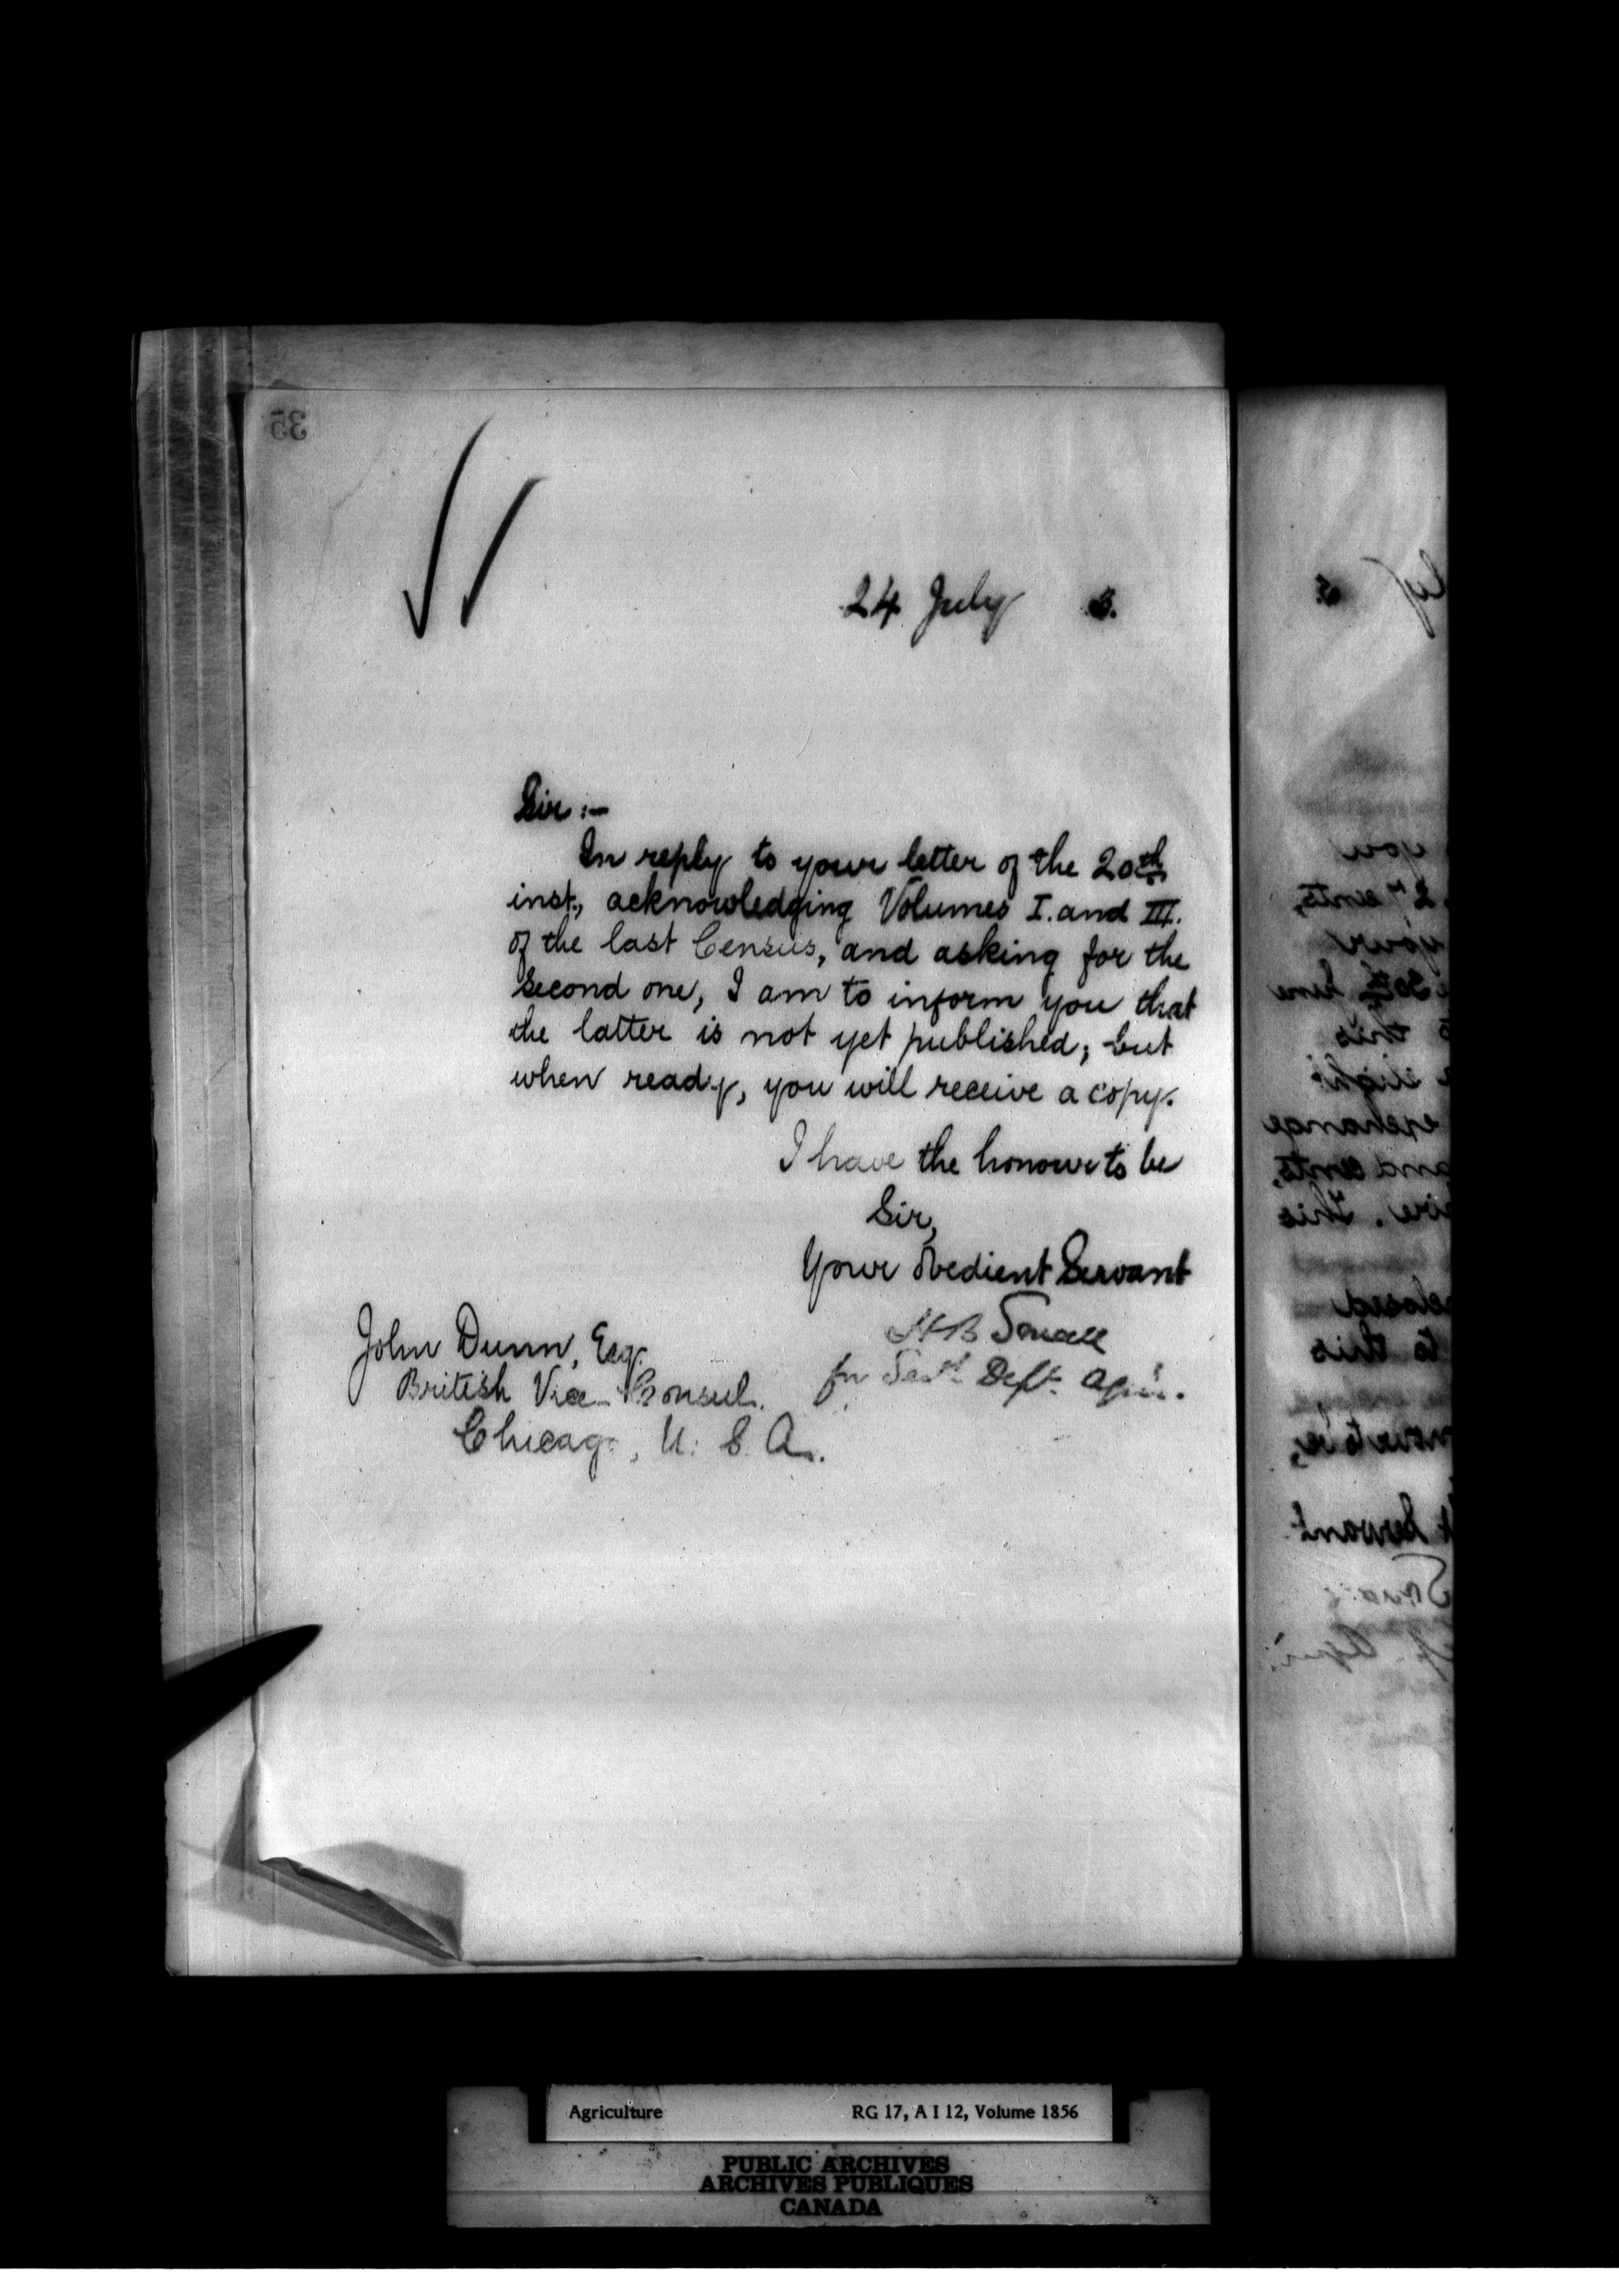 35
24 July 3.
Sir :-
In reply to your letter of the 20th
inst., acknowledging Volumes I. and III.
of the last Census, and asking for the
second one, I am to inform you that
the latter is not yet published; but
when ready, you will receive a copy.
I have the honour to be
Sir,
Your obedient Servant
H B Small
for Sec. Dept. Agric.
John Dunn, Esq.
British Vice-Consul.
Chicago, U. S. A.
you
cents,
your
30th
this
exchange
and cents,
This
to this
Servant
Agriculture RG 17, A I 12, Volume 1856
PUBLIC ARCHIVES
ARCHIVES PUBLIQUES
CANADA